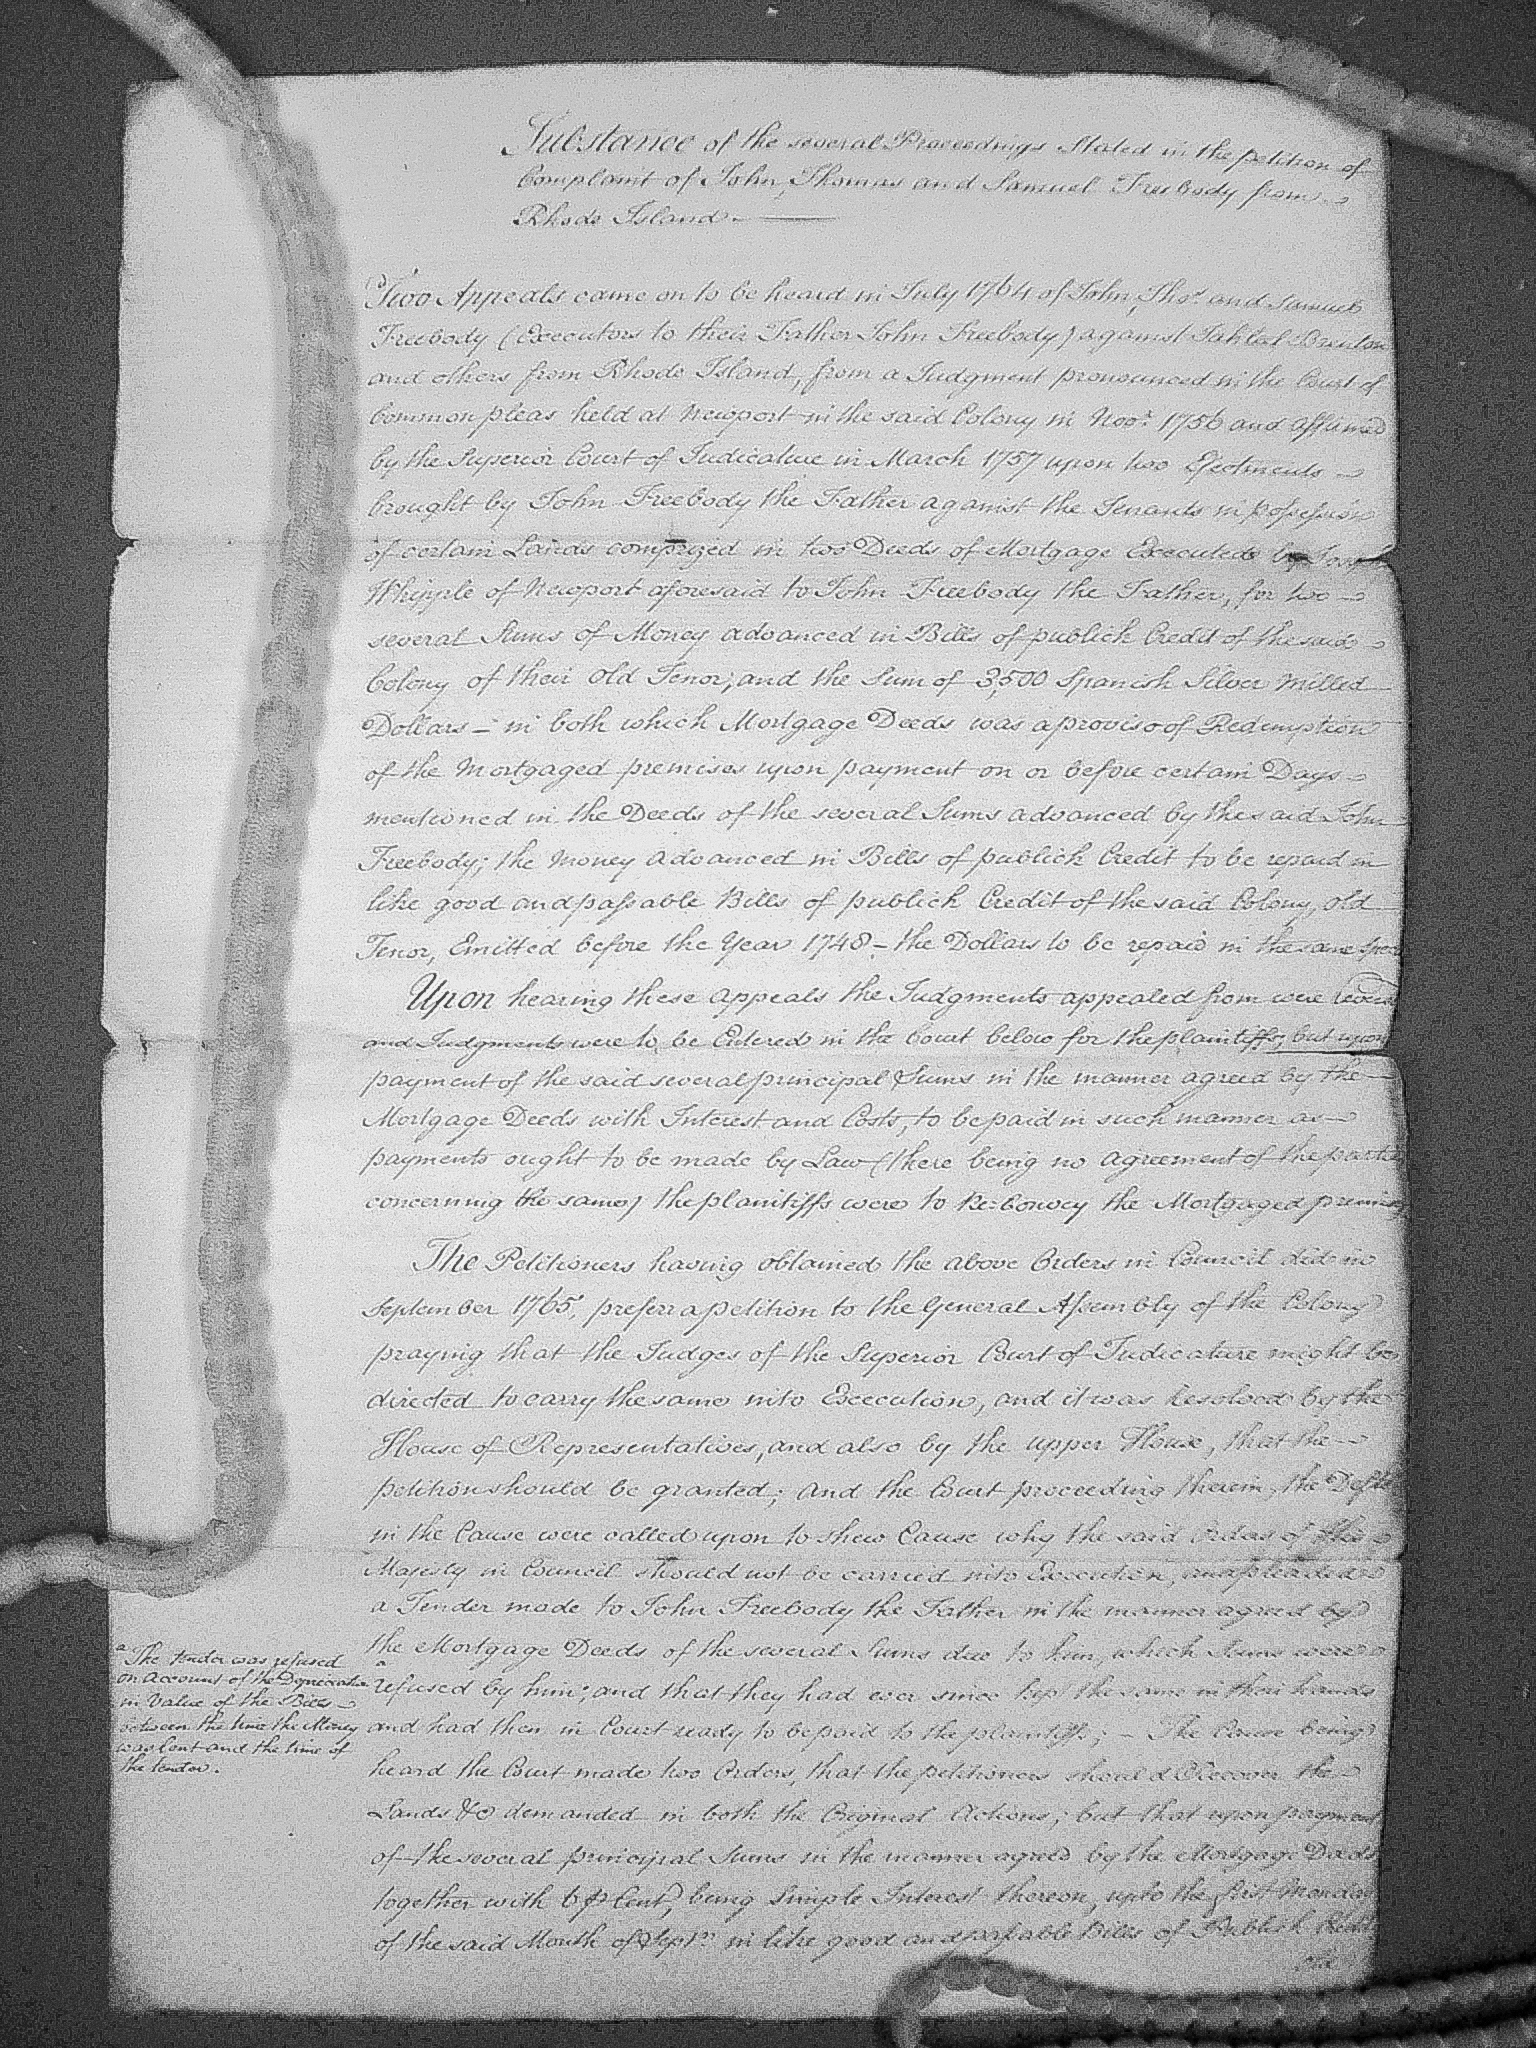 Substance of the several Proceedings Stated in the petition of
Complaint of John, Thomas and Samuel Freebody from
Rhode Island.
Two Appeals came on to be heard in July 1764 of John, Thos. and Samuel
Freebody (Executors to their Father John Freebody) against Jahlal Brenton
and others from Rhode Island, from a Judgment pronounced in the Court of
Common pleas held at Newport in the said Colony in Novr. 1756 and affirmed
by the Superior Court of Judicature in March 1757 upon two Ejectments
brought by John Freebody the Father against the Tenants in possession
of certain Lands comprized in two Deeds of Mortgage Executed by
Whipple of Newport aforesaid to John Freebody the Father, for two
several Sums of Money advanced in Bills of publick Credit of the said
Colony of their old Tenor, and the Sum of 3,500 Spanish Silver milled
Dollars – in both which Mortgage Deeds was a proviso of Redemption
of the Mortgaged premises upon payment on or before certain Days
mentioned in the Deeds of the several Sums advanced by the said John
Freebody; the Money advanced in Bills of publick Credit to be repaid in
like good and passable Bills of publick Credit of the said Colony, old
Tenor, Emitted before the Year 1748 – the Dollars to be repaid in the same
Upon hearing these appeals the Judgments appealed from were
and Judgments were to be Entered in the Court below for the plaintiffs, but upon
payment of the said several principal Sums in the manner agreed by the
Mortgage Deeds with Interest and Costs, to be paid in such manner as
payments ought to be made by Law (there being no agreement of the parties
concerning the same) the plaintiffs were to Re-Convey the Mortgaged premises
The Petitioners having obtained the above Orders in Council did in
September 1765, preferr a petition to the General Assembly of the Colony
praying that the Judges of the Superior Court of Judicature might be
directed to carry the same into Execution, and it was Resolved by the
House of Representatives, and also by the upper House, that the
petition should be granted; and the Court proceeding therein, the Defts
in the Cause were called upon to shew Cause why the said Orders of His
Majesty in Council should not be carried into Execution, pleaded
a Tender made to John Freebody the Father in the manner agreed by
the Mortgage Deeds of the several Sums due to him, which Sums were
a refused by him; and that they had ever since kept the same in their hands
and had then in Court ready to be paid to the plaintiffs; – The Cause being
heard the Court made two Orders, that the petitioners should Recover the
Lands &c demanded in both the Original Actions; but that upon payment
of the several principal Sums in the manner agreed by the Mortgage Deeds
together with 6 p Cent, being Simple Interest thereon, upto the first Monday
of the said Month of Septr. in like good and passable Bills of Publick Credit
old
a The tender was refused
on account of the Depreciation
in Value of the Bills
between the time the Money
was lent and the time of
the tender.